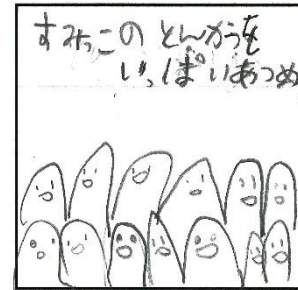 すみっこの とんかつを
いっぱいあつめ